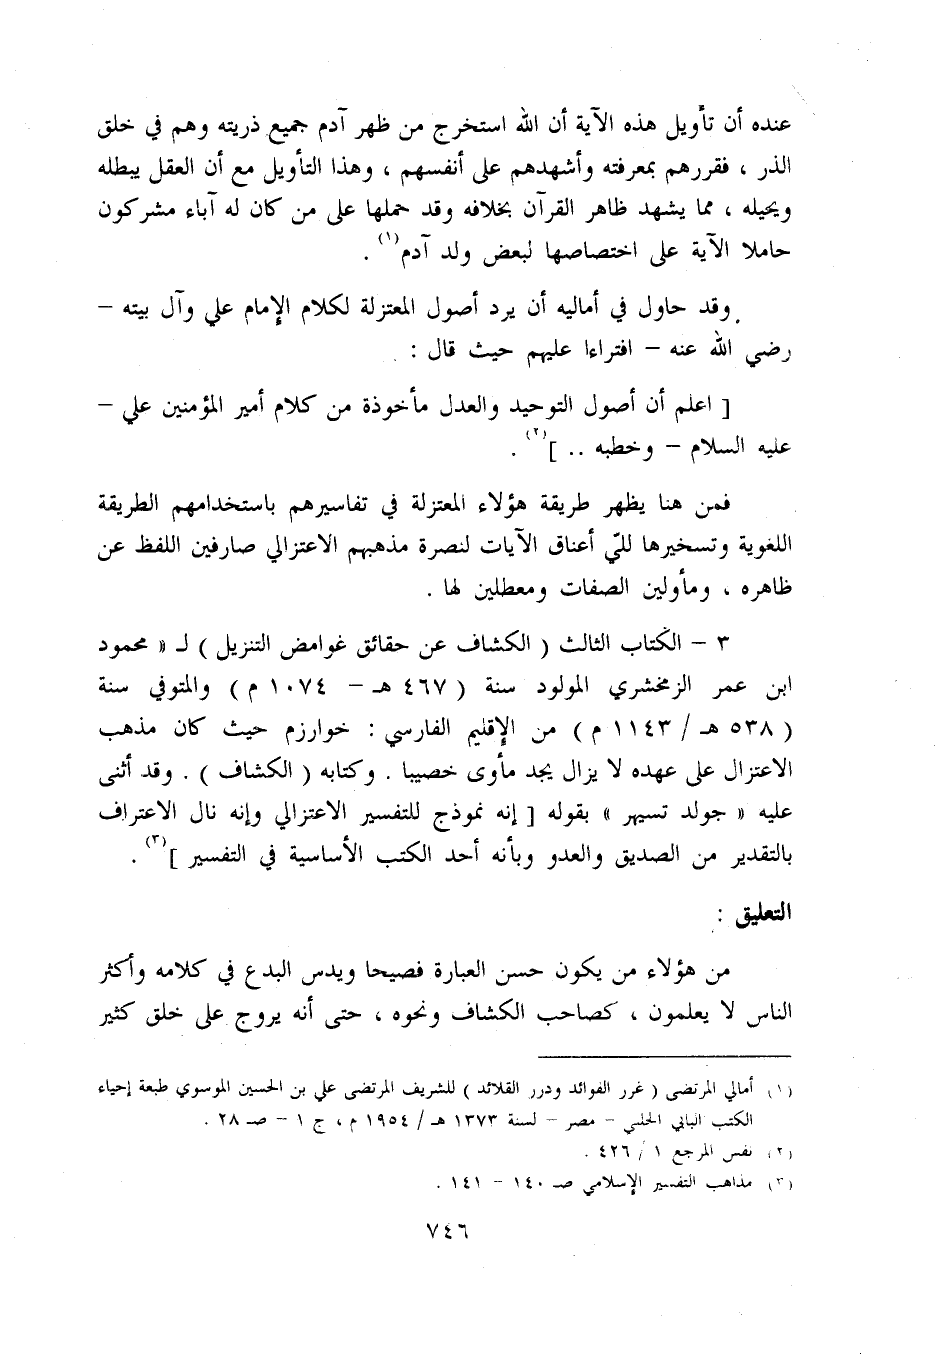 عنده أن تأويل هذه الآية أن الله استخرج من ظهر آدم جميع ذريته وهم في خلق
الذر ، فقررهم بمعرفته وأشهدهم على أنفسهم ، وهذا التأويل مع أن العقل يبطله
ويحيله ، مما يشهد ظاهر القرآن بخلافه وقد حملها على من كان له آباء مشركون
حاملا الآية على اختصاصها لبعض ولد آدم(١) .
وقد حاول في أماليه أن يرد أصول المعتزلة لكلام الإمام علي وآل بيته –
رضي الله عنه – افتراءا عليهم حيث قال :
[ اعلم أن أصول التوحيد والعدل مأخوذة من كلام أمير المؤمنين علي –
عليه السلام – وخطبه .. ](٢) .
فمن هنا يظهر طريقة هؤلاء المعتزلة في تفاسيرهم باستخدامهم الطريقة
اللغوية وتسخيرها لليّ أعناق الآيات لنصرة مذهبهم الاعتزالي صارفين اللفظ عن
ظاهره ، ومأولين الصفات ومعطلين لها .
٣ – الكتاب الثالث ( الكشاف عن حقائق غوامض التنزيل ) لـ « محمود
ابن عمر الزمخشري المولود سنة ( ٤٦٧ هـ – ١٠٧٤ م ) والمتوفي سنة
( ٥٣٨ هـ / ١١٤٣ م ) من الإقليم الفارسي : خوارزم حيث كان مذهب
الاعتزال على عهده لا يزال يجد مأوى خصيبا . وكتابه ( الكشاف ) . وقد أثنى
عليه « جولد تسيهر » بقوله [ إنه نموذج للتفسير الاعتزالي وإنه نال الاعتراف
بالتقدير من الصديق والعدو وبأنه أحد الكتب الأساسية في التفسير ](٣) .
التعليق :
من هؤلاء من يكون حسن العبارة فصيحا ويدس البدع في كلامه وأكثر
الناس لا يعلمون ، كصاحب الكشاف ونحوه ، حتى أنه يروج على خلق كثير
(١) أمالي المرتضى ( غرر الفوائد ودرر القلائد ) للشريف المرتضى علي بن الحسين الموسوي طبعة إحياء
الكتب البابي الحلبي – مصر – لسنة ١٣٧٣ هـ / ١٩٥٤ م ، ج ١ – صـ ٢٨ .
(٢) نفس المرجع ١ / ٤٢٦ .
(٣) مذاهب التفسير الإسلامي صـ ١٤٠ – ١٤١ .
٧٤٦